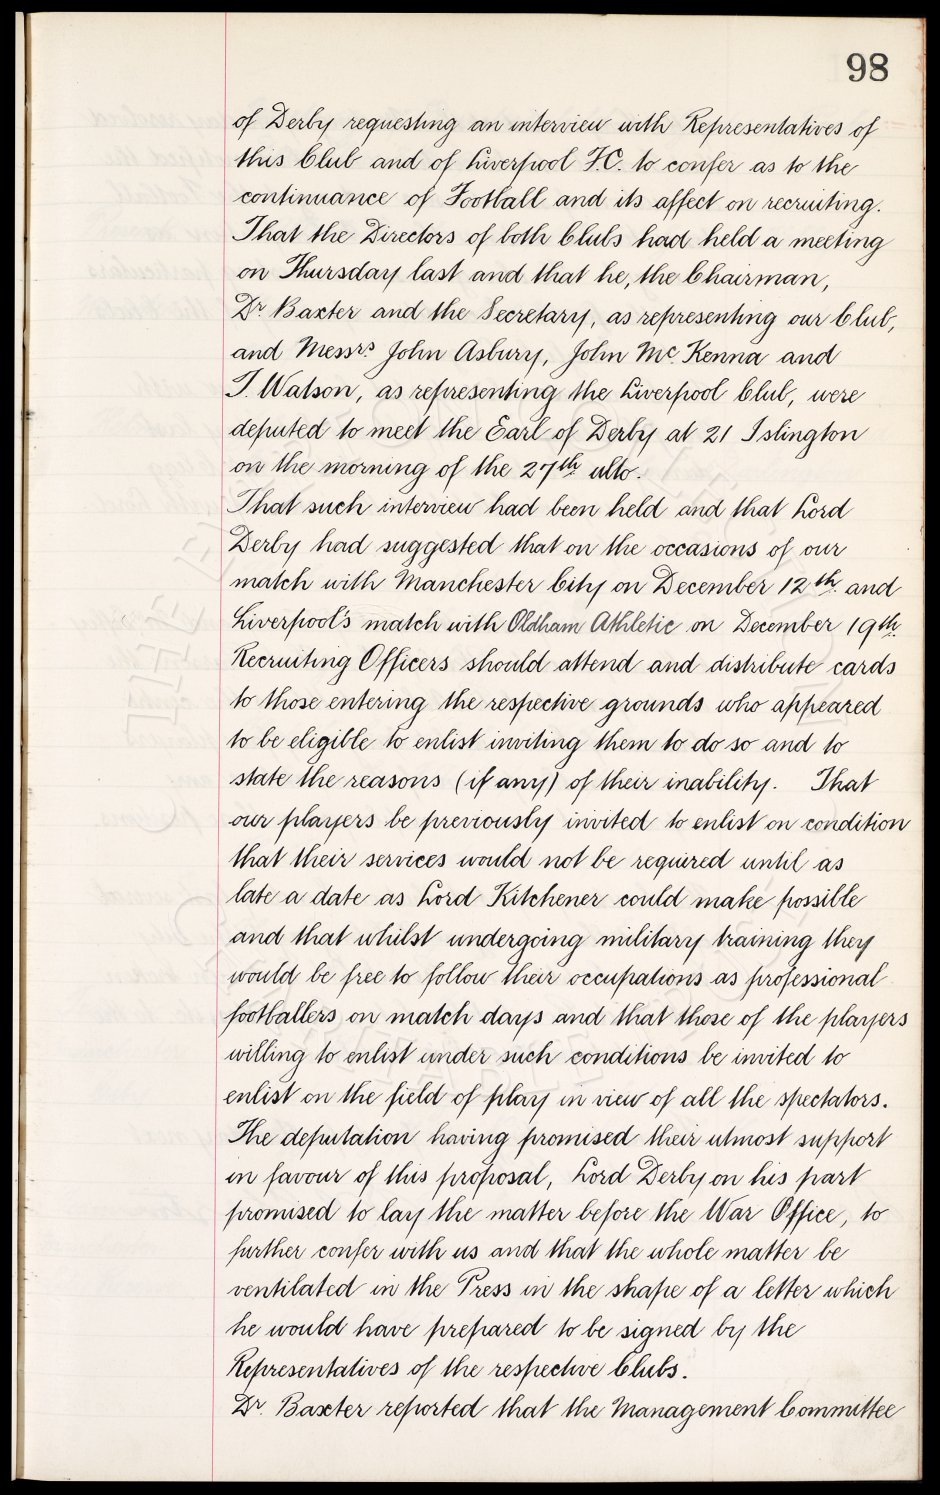 98
of Derby requesting an interview with Representatives of
this Club and of Liverpool F.C. to confer as to the
continuance of Football and its affect on recruiting.
That the Directors of both Clubs had held a meeting
on Thursday last and that he, the Chairman,
Dr. Baxter and the Secretary, as representing our Club,
and Messrs John Asbury, John Mc. Kenna and
T. Watson, as representing the Liverpool Club, were
deputed to meet the Earl of Derby at 21 Islington
on the morning of the 27th ulto.
That such interview had been held and that Lord
Derby had suggested that on the occasions of our
match with Manchester City on December 12th and
Liverpool's match with Oldham Athletic on December 19th
Recruiting Officers should attend and distribute cards
to those entering the respective grounds who appeared
to be eligible to enlist inviting them to do so and to
state the reasons (if any) of their inability. That
our players be previously invited to enlist on condition
that their services would not be required until as
late a date as Lord Kitchener could make possible
and that whilst undergoing military training they
would be free to follow their occupations as professional
footballers on match days and that those of the players
willing to enlist under such conditions be invited to
enlist on the field of play in view of all the spectators.
The deputation having promised their utmost support
in favour of this proposal, Lord Derby on his part
promised to lay the matter before the War Office, to
further confer with us and that the whole matter be
ventilated in the Press in the shape of a letter which
he would have prepared to be signed by the
Representatives of the respective Clubs.
Dr. Baxter reported that the Management Committee